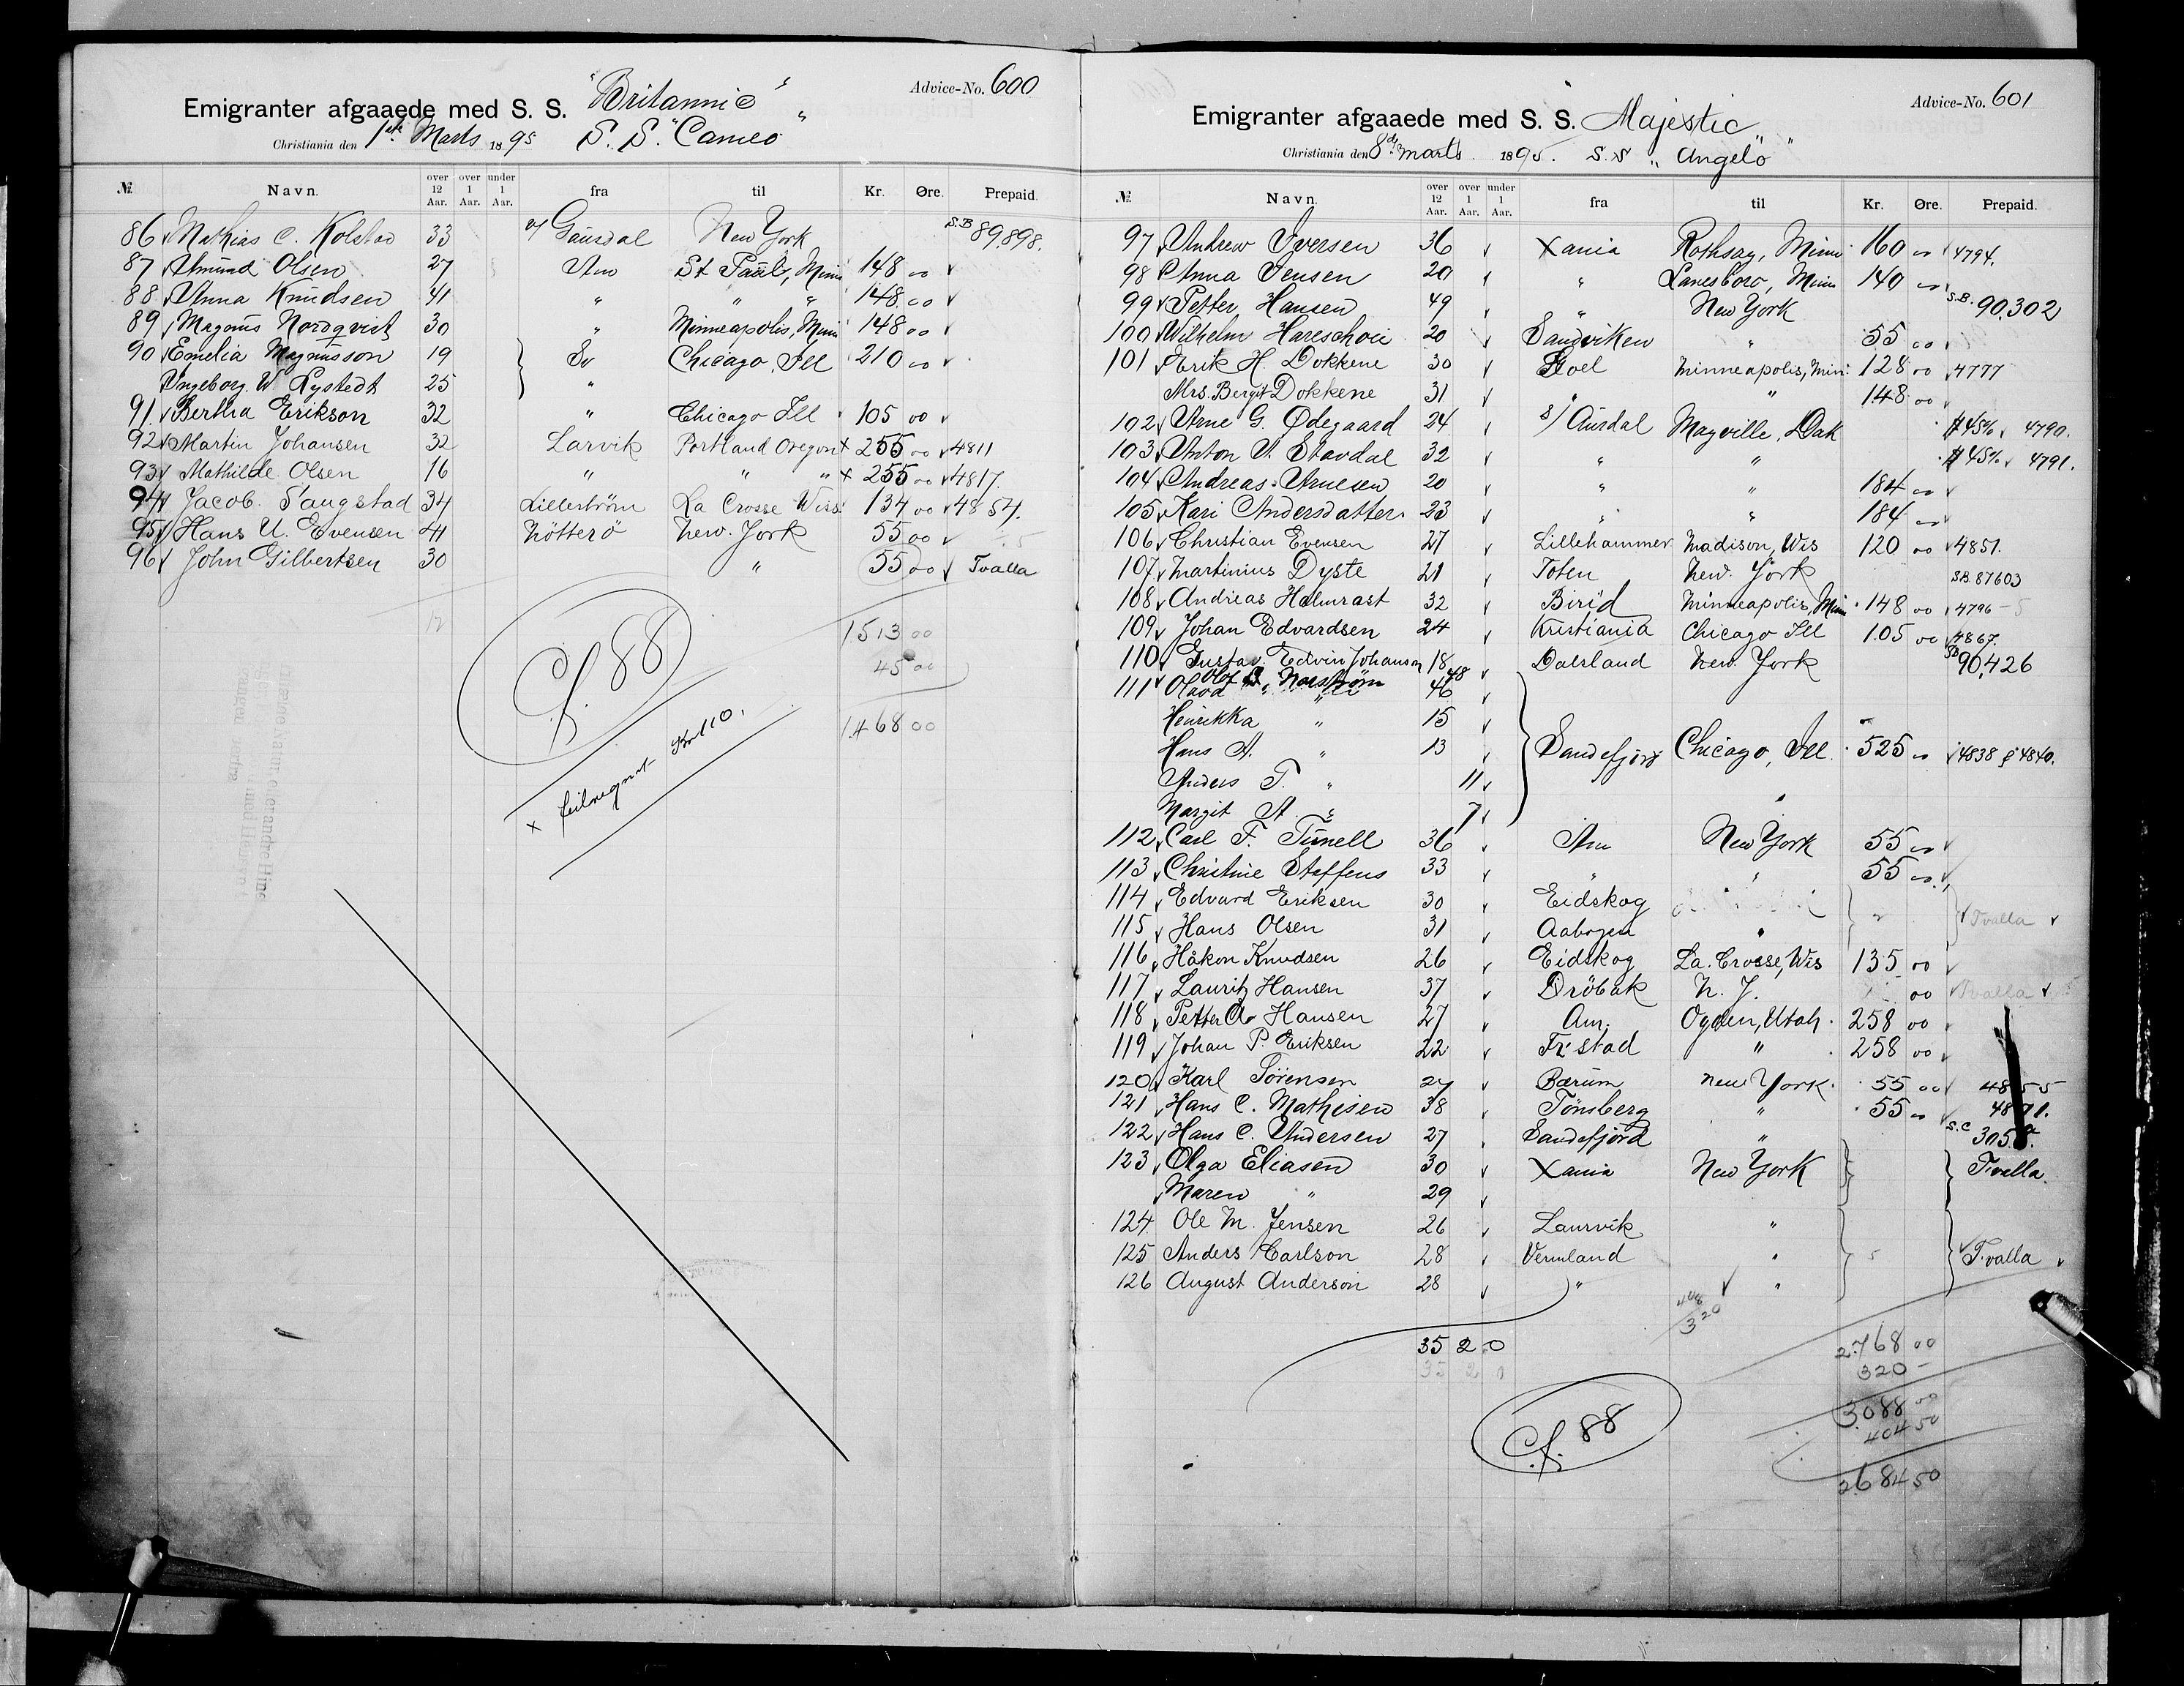 Advice-No. 600
Emigranter afgaaede med S. S. "Britannic"
Christiania den 1ste Marts 1895 S. S. "Cameo"
№ Navn. over 12 Aar. over 1 Aar. under 1 Aar. fra til Kr. Øre. Prepaid.
86 Mathias C. Kolstad 33 Gausdal New York S.B 89,898.
87 Amund Olsen 27 Am St Paul, Minn 148 00
88 Anna Knudsen 41 " " " 148.00
89 Magnus Nordqvist 30 " Minneapolis, Minn 148 00
90 Emelia Magnusson 19 Sv Chicago, Ill 210 00
Ingeborg W. Lystedt 25 "
91. Bertha Erikson 32 " Chicago Ill 105 00
92 Martin Johansen 32 Larvik Portland Oregon x 255 00 4811
93 Mathilde Olsen 16 " " " x 255 00 4817.
94 Jacob Saugstad 34 Lillestrøm La Crosse Wis. 134 00 4854.
95 Hans U. Evensen 41 Nötterö New. York 55 00
96 John Gilbertsen 30 " 55 00 Tvalla
12
1513 00
45 00
1468 00
Cf. 88
x feilregnet
Advice-No. 601
Emigranter afgaaede med S. S. Majestic"
Christiania den 8de Marts 1895. S.S "Angelo"
№ Navn. over 12 Aar. over 1 Aar. under 1 Aar. fra til Kr. Øre. Prepaid.
97 Andrew Iversen 36 Xania Rothsay, Minn 160 00 4794.
98 Anna Jensen 20 " Lanesboro, Minn 140 00
99 Petter Hansen 49 " New York S.B. 90,302
100 Wilhelm Hareschou 20 Sandviken " 55 00
101 Erik H. Dokkene 30 Minneapolis, Minn. 128 00 4777
Mrs. Bergit Dokkene 31 " " 148 00
102 Arne G. Ødegaard 24 S/ Aurdal Mayville, Dak 4790.
103 Anton A. Stavdal 32 " " 4791.
104 Andreas Arnesen 20 " " 184 00
105 Kari Andersdatter 23 " " 184 00
106 Christian Evensen 27 Lillehammer Madison, Wis 120 00 4851.
107 Martinius Dyste 21 Toten New. York S.B. 87603
108 Andreas Halmrast 32 Birid Minneapolis, Minn 148 00 4796
109 Johan Edvardsen 24 Kristiania Chicago Ill 105 00 4867.
110 Gustav Edvin Johanson 18 Dalsland New. York SB 90,426
111 Olof Norström 48
" 46
Henrikka " 15
Hans A. " 13 Sandefjord Chicago, Ill. 525 00 4838 & 4840.
Anders T. " 11
Margit A. " 7
112 Carl F. Tunell 36 Am New York 55 00
113 Christine Steffens 33 " " 55 00
114 Edvard Eriksen 30 Eidskog Tvalla
115 Hans Olsen 31 Aabogen "
116 Håkon Knudsen 26 Eidskog La. Crosse, Wis 135 00
117 Lauritz Hansen 37 Dröbak N. Y. 00 Tvalla
118 Petter A. Hansen 27 Am. Ogden, Utah. 258 00
119 Johan P. Eriksen 22 Fr:stad " 258 00
120 Karl Sörensen 27 Bærum New York. 55 00 4855
121 Hans C. Mathisen 38 Tönsberg " 55 00
122 Hans C. Andersen 27 Sandefjord " S.C
123 Olga Eliasen 30 Xania New York Tvalla.
Maren " 29
124 Ole M. Jensen 26 Laurvik "
125 Anders Carlson 28 Vermland " Tvalla
126 August Anderson 28 " "
35 2 0
35 2 0
2.768 00
320 –
3.088 00
404 50
2684 50
Cf. 88